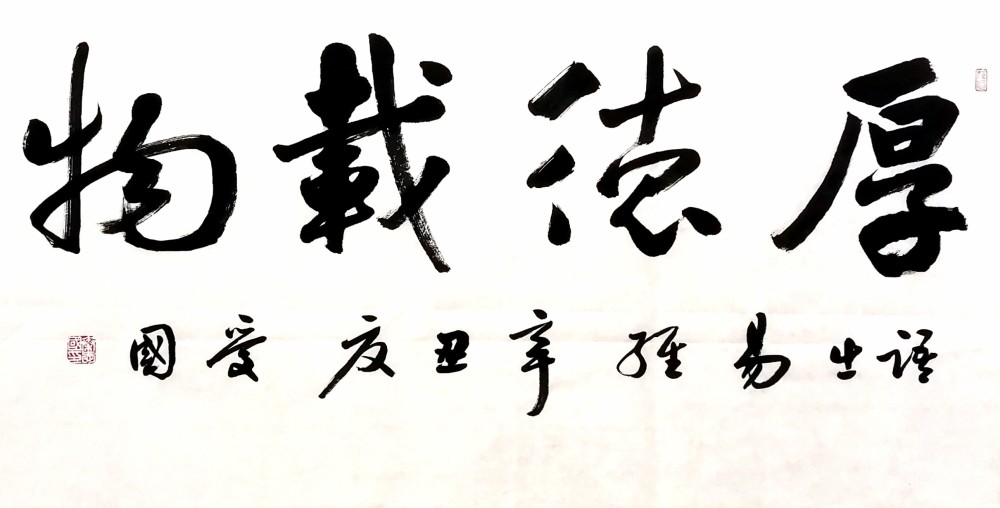 厚德載物
語出易經辛丑友愛國